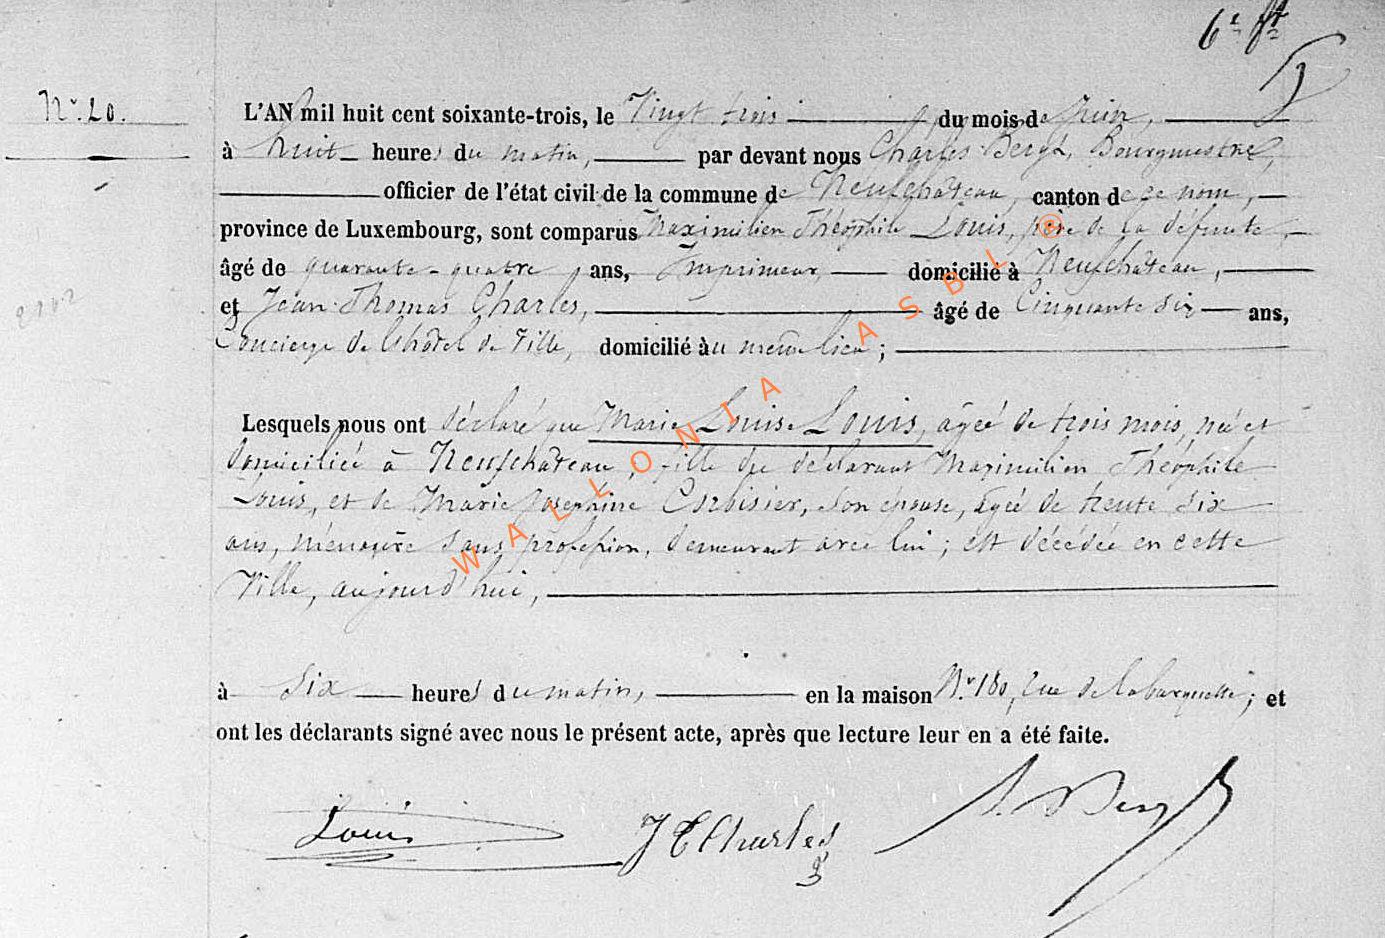 6e ft
N° 20.
L'AN mil huit cent soixante-trois, le Vingt trois du mois de Juin,
à huit heures du matin, par devant nous Charles Bergh, Bourgmestre,
officier de l'état civil de la commune de Neufchâteau, canton de ce nom,
province de Luxembourg, sont comparus Maximilien Théophile Louis, père de la défunte,
âgé de quarante-quatre ans, Imprimeur, domicilié à Neufchâteau,
et Jean Thomas Charles, âgé de Cinquante six ans,
Concierge de l'hôtel de Ville, domicilié au même lieu;
Lesquels nous ont déclaré que Marie Louise Louis, âgée de trois mois, née et
domiciliée à Neufchâteau, fille du déclarant Maximilien Théophile
Louis, et de Marie Josephine Corbisier, son épouse, âgée de trente six
ans, ménagère sans profession, demeurant avec lui; est décédée en cette
Ville, aujourd'hui,
à six heures du matin, en la maison N° 180, rue de la barquette; et
ont les déclarants signé avec nous le présent acte, après que lecture leur en a été faite.
Louis JTCharles
WALLONIA ASBL ®